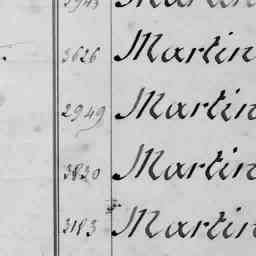 3943 Martin
3626 Martin
2949 Martin
3830 Martin
3183 Martin